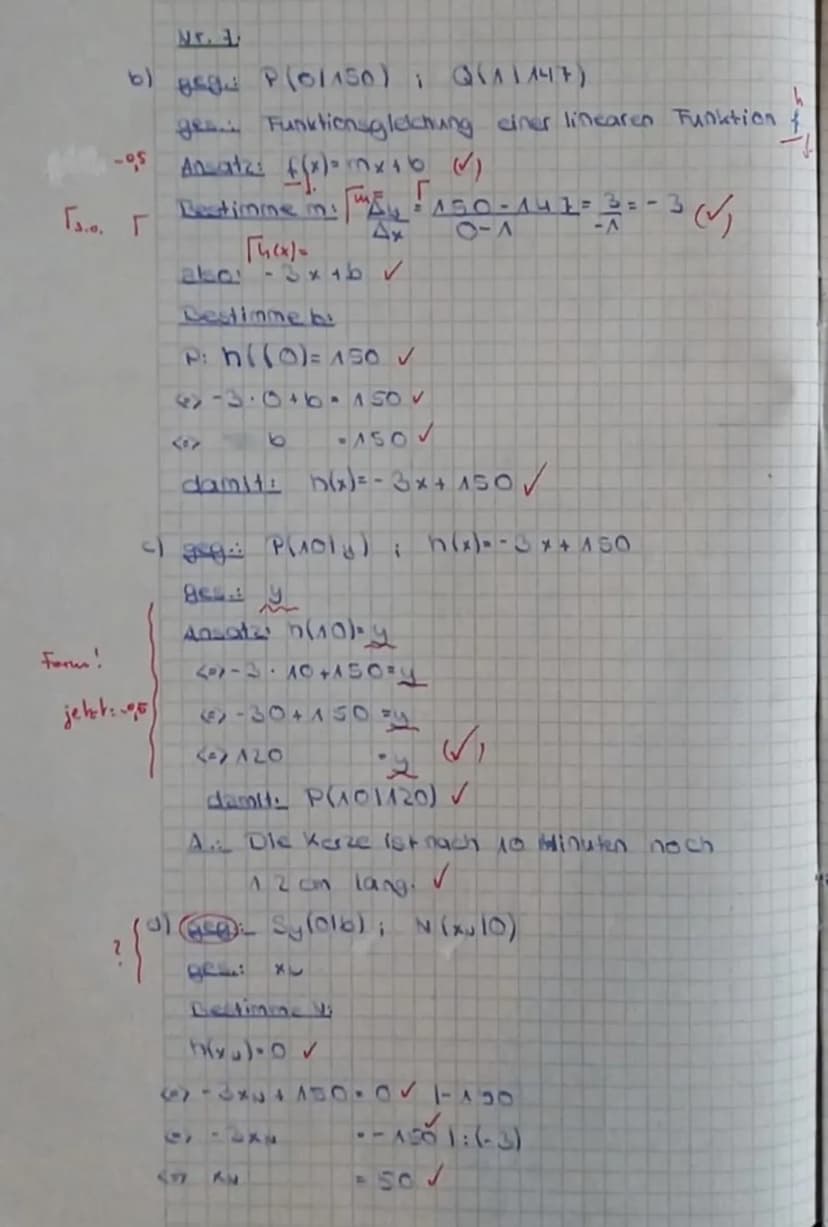 Nr. 1
b) geg.: P(0|150) ; Q(1|147)
h
ges.: Funktionsgleichung einer linearen Funktion f
-0,5 Ansatz: f(x)=mx+b (✓)
Γs.o. Γ Bestimme m: Γm= Δy/Δx = Γ 150-147/0-1 = 3/-1 = -3 (✓)
Γh(x)=
also: -3x+b ✓
Bestimme b:
P: h((0)=150 ✓
<=> -3·0+b=150 ✓
<=> b =150 ✓
damit: h(x)=-3x+150 ✓
c) geg.: P(10|y) ; h(x)=-3x+150
ges.: y
Ansatz: h(10)=y
Form! <=> -3·10+150=y
jetzt: -0,5 <=> -30+150=y
<=> 120 =y (✓)
damit: P(10|120) ✓
A.: Die Kerze ist nach 10 Minuten noch
12 cm lang. ✓
? d) geg.: Sy(0|b) ; N(xN|0)
ges.: xN
Bestimme
h(xN)=0 ✓
<=> -3xN+150=0 ✓ |-150
<=> -3xN =-150 ✓ |:(-3)
<=> xN =50 ✓